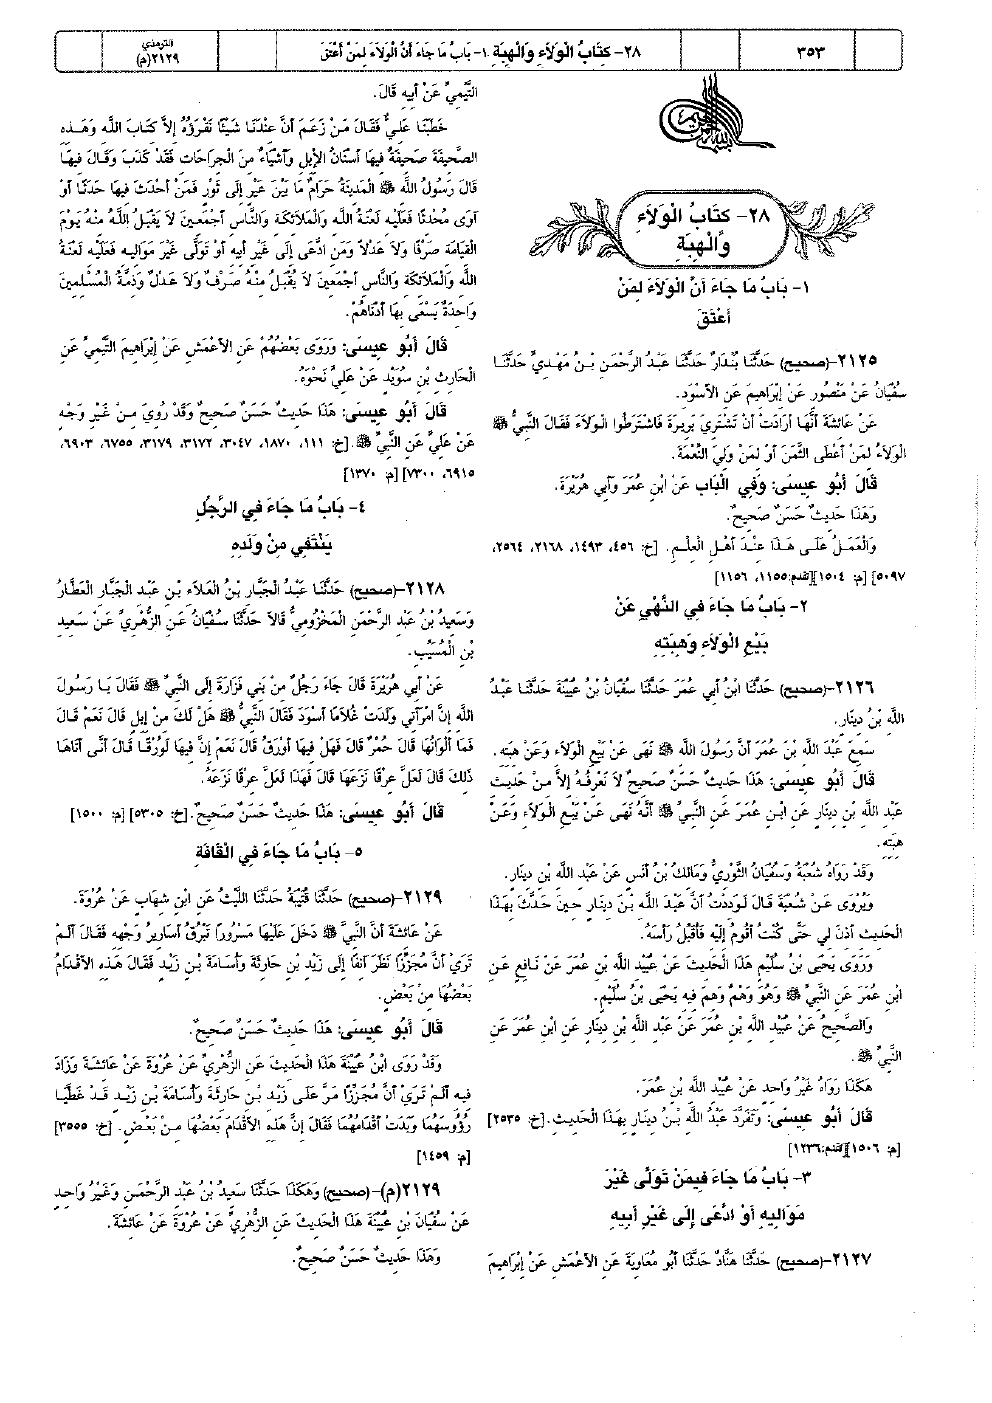 ٣٥٣
٢٨- كِتَابُ الْوَلَاءِ وَالْهِبَةِ ١- بَابُ مَا جَاءَ أَنَّ الْوَلَاءَ لِمَنْ أَعْتَقَ
الترمذي
٢١٢٩(م)
٢٨- كِتَابُ الْوَلَاءِ
وَالْهِبَةِ
١- بَابُ مَا جَاءَ أَنَّ الْوَلَاءَ لِمَنْ
أَعْتَقَ
٢١٢٥-(صحيح) حَدَّثَنَا بُنْدَارٌ حَدَّثَنَا عَبْدُ الرَّحْمَنِ بْنُ مَهْدِيٍّ حَدَّثَنَا
سُفْيَانُ عَنْ مَنْصُورٍ عَنْ إِبْرَاهِيمَ عَنِ الأَسْوَدِ.
عَنْ عَائِشَةَ أَنَّهَا أَرَادَتْ أَنْ تَشْتَرِيَ بَرِيرَةَ فَاشْتَرَطُوا الْوَلَاءَ فَقَالَ النَّبِيُّ ﷺ
الْوَلَاءُ لِمَنْ أَعْطَى الثَّمَنَ أَوْ لِمَنْ وَلِيَ النِّعْمَةَ.
قَالَ أَبُو عِيسَى: وَفِي الْبَابِ عَنْ ابْنِ عُمَرَ وَأَبِي هُرَيْرَةَ.
وَهَذَا حَدِيثٌ حَسَنٌ صَحِيحٌ.
وَالْعَمَلُ عَلَى هَذَا عِنْدَ أَهْلِ الْعِلْمِ. [خ: ٤٥٦، ١٤٩٣، ٢١٦٨، ٢٥٦٤،
٥٠٩٧] [م: ١٥٠٤][تقدم: ١١٥٥، ١١٥٦]
٢- بَابُ مَا جَاءَ فِي النَّهْيِ عَنْ
بَيْعِ الْوَلَاءِ وَهِبَتِهِ
٢١٢٦-(صحيح) حَدَّثَنَا ابْنُ أَبِي عُمَرَ حَدَّثَنَا سُفْيَانُ بْنُ عُيَيْنَةَ حَدَّثَنَا عَبْدُ
اللَّهِ بْنُ دِينَارٍ.
سَمِعَ عَبْدَ اللَّهِ بْنَ عُمَرَ أَنَّ رَسُولَ اللَّهِ ﷺ نَهَى عَنْ بَيْعِ الْوَلَاءِ وَعَنْ هِبَتِهِ.
قَالَ أَبُو عِيسَى: هَذَا حَدِيثٌ حَسَنٌ صَحِيحٌ لاَ نَعْرِفُهُ إِلاَّ مِنْ حَدِيثِ
عَبْدِ اللَّهِ بْنِ دِينَارٍ عَنِ ابْنِ عُمَرَ عَنِ النَّبِيِّ ﷺ أَنَّهُ نَهَى عَنْ بَيْعِ الْوَلَاءِ وَعَنْ
هِبَتِهِ.
وَقَدْ رَوَاهُ شُعْبَةُ وَسُفْيَانُ الثَّوْرِيُّ وَمَالِكُ بْنُ أَنَسٍ عَنْ عَبْدِ اللَّهِ بْنِ دِينَارٍ.
وَيُرْوَى عَنْ شُعْبَةَ قَالَ لَوَدِدْتُ أَنَّ عَبْدَ اللَّهِ بْنَ دِينَارٍ حِينَ حَدَّثَ بِهَذَا
الْحَدِيثِ أَذِنَ لِي حَتَّى كُنْتُ أَقُومُ إِلَيْهِ فَأُقَبِّلُ رَأْسَهُ.
وَرَوَى يَحْيَى بْنُ سُلَيْمٍ هَذَا الْحَدِيثَ عَنْ عُبَيْدِ اللَّهِ بْنِ عُمَرَ عَنْ نَافِعٍ عَنِ
ابْنِ عُمَرَ عَنِ النَّبِيِّ ﷺ وَهُوَ وَهْمٌ وَهِمَ فِيهِ يَحْيَى بْنُ سُلَيْمٍ.
وَالصَّحِيحُ عَنْ عُبَيْدِ اللَّهِ بْنِ عُمَرَ عَنْ عَبْدِ اللَّهِ بْنِ دِينَارٍ عَنِ ابْنِ عُمَرَ عَنِ
النَّبِيِّ ﷺ.
هَكَذَا رَوَاهُ غَيْرُ وَاحِدٍ عَنْ عُبَيْدِ اللَّهِ بْنِ عُمَرَ.
قَالَ أَبُو عِيسَى: وَتَفَرَّدَ عَبْدُ اللَّهِ بْنُ دِينَارٍ بِهَذَا الْحَدِيثِ. [خ: ٢٥٣٥]
[م: ١٥٠٦][تقدم: ١٢٣٦]
٣- بَابُ مَا جَاءَ فِيمَنْ تَوَلَّى غَيْرَ
مَوَالِيهِ أَوْ ادَّعَى إِلَى غَيْرِ أَبِيهِ
٢١٢٧-(صحيح) حَدَّثَنَا هَنَّادٌ حَدَّثَنَا أَبُو مُعَاوِيَةَ عَنِ الأَعْمَشِ عَنْ إِبْرَاهِيمَ
التَّيْمِيِّ عَنْ أَبِيهِ قَالَ.
خَطَبَنَا عَلِيٌّ فَقَالَ مَنْ زَعَمَ أَنَّ عِنْدَنَا شَيْئًا نَقْرَؤُهُ إِلاَّ كِتَابَ اللَّهِ وَهَذِهِ
الصَّحِيفَةَ صَحِيفَةٌ فِيهَا أَسْنَانُ الإِبِلِ وَأَشْيَاءٌ مِنَ الْجِرَاحَاتِ فَقَدْ كَذَبَ وَقَالَ فِيهَا
قَالَ رَسُولُ اللَّهِ ﷺ الْمَدِينَةُ حَرَامٌ مَا بَيْنَ عَيْرٍ إِلَى ثَوْرٍ فَمَنْ أَحْدَثَ فِيهَا حَدَثًا أَوْ
آوَى مُحْدِثًا فَعَلَيْهِ لَعْنَةُ اللَّهِ وَالْمَلاَئِكَةِ وَالنَّاسِ أَجْمَعِينَ لاَ يَقْبَلُ اللَّهُ مِنْهُ يَوْمَ
الْقِيَامَةِ صَرْفًا وَلاَ عَدْلاً وَمَنِ ادَّعَى إِلَى غَيْرِ أَبِيهِ أَوْ تَوَلَّى غَيْرَ مَوَالِيهِ فَعَلَيْهِ لَعْنَةُ
اللَّهِ وَالْمَلاَئِكَةِ وَالنَّاسِ أَجْمَعِينَ لاَ يُقْبَلُ مِنْهُ صَرْفٌ وَلاَ عَدْلٌ وَذِمَّةُ الْمُسْلِمِينَ
وَاحِدَةٌ يَسْعَى بِهَا أَدْنَاهُمْ.
قَالَ أَبُو عِيسَى: وَرَوَى بَعْضُهُمْ عَنِ الأَعْمَشِ عَنْ إِبْرَاهِيمَ التَّيْمِيِّ عَنِ
الْحَارِثِ بْنِ سُوَيْدٍ عَنْ عَلِيٍّ نَحْوَهُ.
قَالَ أَبُو عِيسَى: هَذَا حَدِيثٌ حَسَنٌ صَحِيحٌ وَقَدْ رُوِيَ مِنْ غَيْرِ وَجْهٍ
عَنْ عَلِيٍّ عَنِ النَّبِيِّ ﷺ. [خ: ١١١، ١٨٧٠، ٣٠٤٧، ٣١٧٢، ٣١٧٩، ٦٧٥٥، ٦٩٠٣،
٦٩١٥، ٧٣٠٠] [م: ١٣٧٠]
٤- بَابُ مَا جَاءَ فِي الرَّجُلِ
يَنْتَفِي مِنْ وَلَدِهِ
٢١٢٨-(صحيح) حَدَّثَنَا عَبْدُ الْجَبَّارِ بْنُ الْعَلاَءِ بْنِ عَبْدِ الْجَبَّارِ الْعَطَّارُ
وَسَعِيدُ بْنُ عَبْدِ الرَّحْمَنِ الْمَخْزُومِيُّ قَالاَ حَدَّثَنَا سُفْيَانُ عَنِ الزُّهْرِيِّ عَنْ سَعِيدِ
بْنِ الْمُسَيَّبِ.
عَنْ أَبِي هُرَيْرَةَ قَالَ جَاءَ رَجُلٌ مِنْ بَنِي فَزَارَةَ إِلَى النَّبِيِّ ﷺ فَقَالَ يَا رَسُولَ
اللَّهِ إِنَّ امْرَأَتِي وَلَدَتْ غُلاَمًا أَسْوَدَ فَقَالَ النَّبِيُّ ﷺ هَلْ لَكَ مِنْ إِبِلٍ قَالَ نَعَمْ قَالَ
فَمَا أَلْوَانُهَا قَالَ حُمْرٌ قَالَ فَهَلْ فِيهَا أَوْرَقُ قَالَ نَعَمْ إِنَّ فِيهَا لَوُرْقًا قَالَ أَنَّى أَتَاهَا
ذَلِكَ قَالَ لَعَلَّ عِرْقًا نَزَعَهَا قَالَ فَهَذَا لَعَلَّ عِرْقًا نَزَعَهُ.
قَالَ أَبُو عِيسَى: هَذَا حَدِيثٌ حَسَنٌ صَحِيحٌ. [خ: ٥٣٠٥] [م: ١٥٠٠]
٥- بَابُ مَا جَاءَ فِي الْقَافَةِ
٢١٢٩-(صحيح) حَدَّثَنَا قُتَيْبَةُ حَدَّثَنَا اللَّيْثُ عَنِ ابْنِ شِهَابٍ عَنْ عُرْوَةَ.
عَنْ عَائِشَةَ أَنَّ النَّبِيَّ ﷺ دَخَلَ عَلَيْهَا مَسْرُورًا تَبْرُقُ أَسَارِيرُ وَجْهِهِ فَقَالَ أَلَمْ
تَرَيْ أَنَّ مُجَزِّزًا نَظَرَ آنِفًا إِلَى زَيْدِ بْنِ حَارِثَةَ وَأُسَامَةَ بْنِ زَيْدٍ فَقَالَ هَذِهِ الأَقْدَامُ
بَعْضُهَا مِنْ بَعْضٍ.
قَالَ أَبُو عِيسَى: هَذَا حَدِيثٌ حَسَنٌ صَحِيحٌ.
وَقَدْ رَوَى ابْنُ عُيَيْنَةَ هَذَا الْحَدِيثَ عَنِ الزُّهْرِيِّ عَنْ عُرْوَةَ عَنْ عَائِشَةَ وَزَادَ
فِيهِ أَلَمْ تَرَيْ أَنَّ مُجَزِّزًا مَرَّ عَلَى زَيْدِ بْنِ حَارِثَةَ وَأُسَامَةَ بْنِ زَيْدٍ قَدْ غَطَّيَا
رُؤُوسَهُمَا وَبَدَتْ أَقْدَامُهُمَا فَقَالَ إِنَّ هَذِهِ الأَقْدَامَ بَعْضُهَا مِنْ بَعْضٍ. [خ: ٣٥٥٥]
[م: ١٤٥٩]
٢١٢٩(م)-(صحيح) وَهَكَذَا حَدَّثَنَا سَعِيدُ بْنُ عَبْدِ الرَّحْمَنِ وَغَيْرُ وَاحِدٍ
عَنْ سُفْيَانَ بْنِ عُيَيْنَةَ هَذَا الْحَدِيثَ عَنِ الزُّهْرِيِّ عَنْ عُرْوَةَ عَنْ عَائِشَةَ.
وَهَذَا حَدِيثٌ حَسَنٌ صَحِيحٌ.